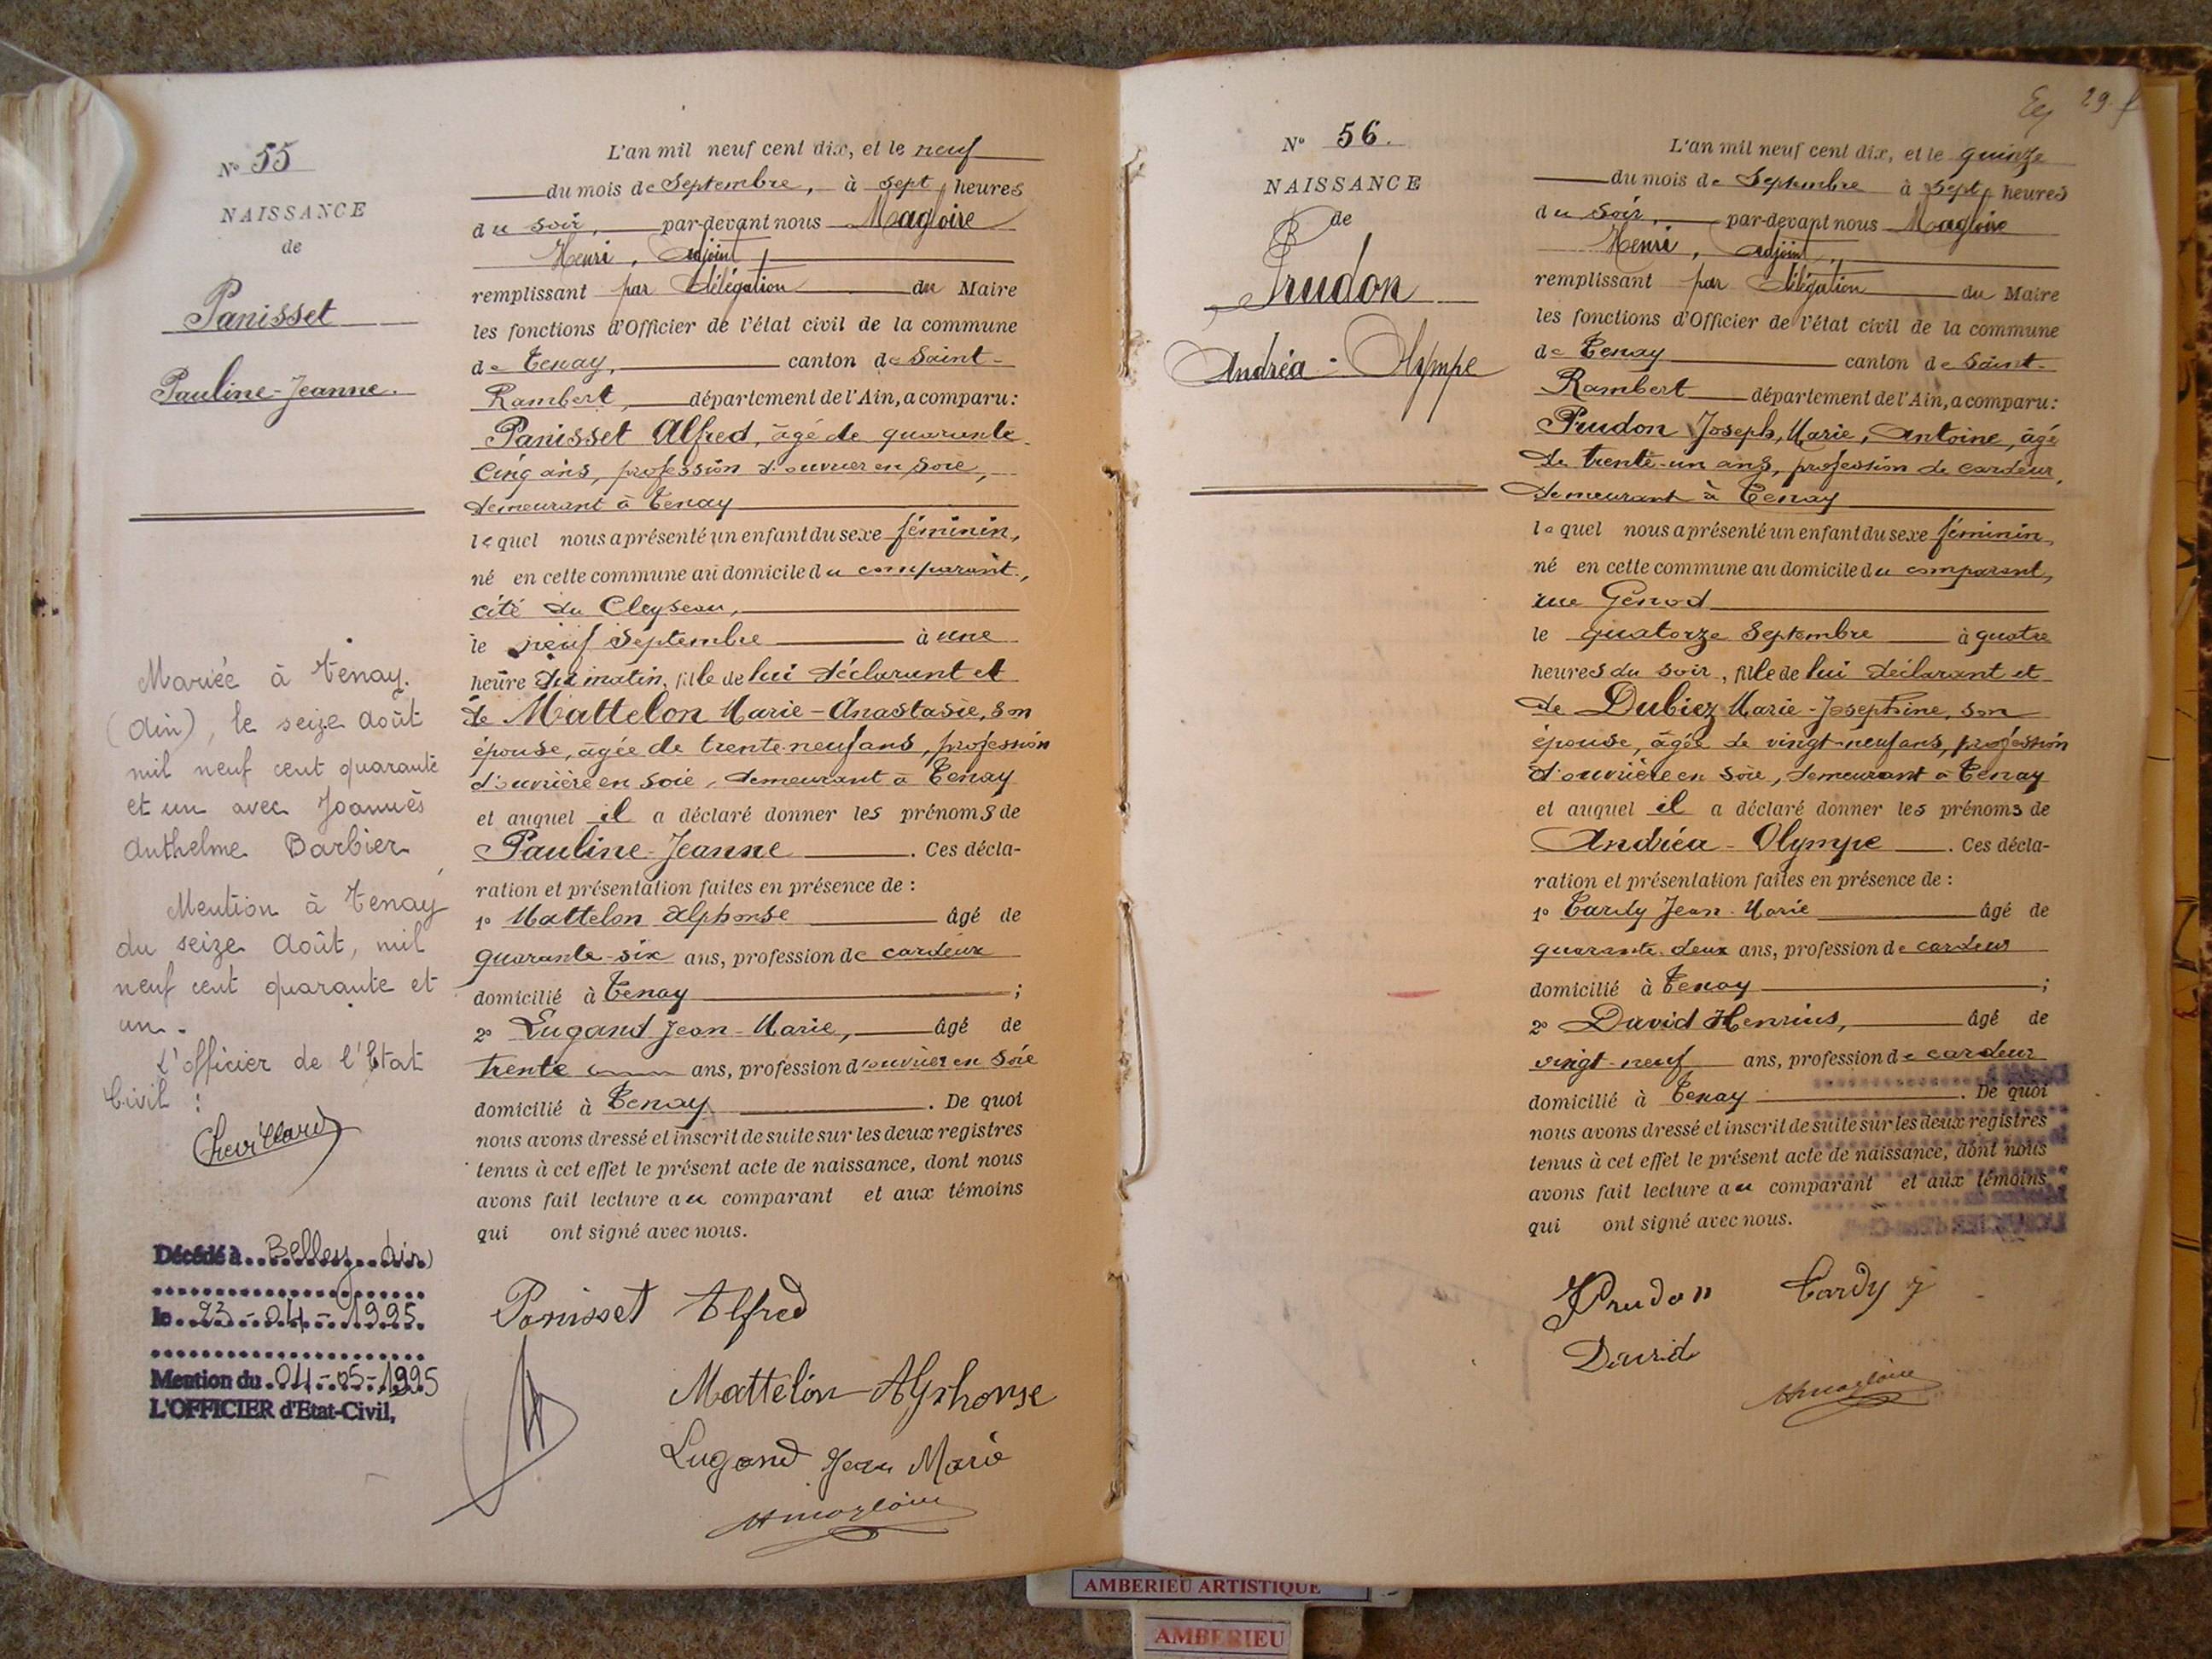 N° 55
NAISSANCE
de
Panisset
Pauline-Jeanne.
Mariée à Tenay.
(Ain), le seize Août
mil neuf cent quarante
et un avec Joannès
Anthelme Barbier
Mention à Tenay
du seize Août, mil
neuf cent quarante et
un.
L'officier de l'Etat
Civil :
Chevillard
Décédé à Belley (Ain)
le 23-04-1995
Mention du 04-05-1995
L'OFFICIER d'Etat-Civil,
L'an mil neuf cent dix, et le neuf
du mois de Septembre, à sept heures
du soir, par-devant nous Magloire
Henri, adjoint,
remplissant par délégation du Maire
les fonctions d'Officier de l'état civil de la commune
de Tenay, canton de Saint-
Rambert, département de l'Ain, a comparu :
Panisset Alfred, âgé de quarante
cinq ans, profession d'ouvrier en soie,
demeurant à Tenay
lequel nous a présenté un enfant du sexe féminin,
né en cette commune au domicile du comparant,
cité du Cleyseau,
le neuf Septembre à une
heure du matin, fille de lui déclarant et
de Mattelon Marie-Anastasie, son
épouse, âgée de trente-neuf ans, profession
d'ouvrière en soie, demeurant à Tenay
et auquel il a déclaré donner les prénoms de
Pauline-Jeanne. Ces décla-
ration et présentation faites en présence de :
1° Mattelon Alphonse âgé de
quarante-six ans, profession de cardeur
domicilié à Tenay ;
2° Lugand Jean-Marie, âgé de
trente ans, profession d'ouvrier en soie
domicilié à Tenay. De quoi
nous avons dressé et inscrit de suite sur les deux registres
tenus à cet effet le présent acte de naissance, dont nous
avons fait lecture au comparant et aux témoins
qui ont signé avec nous.
Panisset Alfred
Mattelon Alphonse
Lugand Jean Marie
H magloire
29
N° 56.
NAISSANCE
de
Prudon
Andréa-Olympe
L'an mil neuf cent dix, et le quinze
du mois de Septembre à sept heures
du soir, par-devant nous Magloire
Henri, adjoint,
remplissant par délégation du Maire
les fonctions d'Officier de l'état civil de la commune
de Tenay canton de Saint-
Rambert département de l'Ain, a comparu :
Prudon Joseph, Marie, Antoine, âgé
de trente-un ans, profession de cardeur,
demeurant à Tenay
lequel nous a présenté un enfant du sexe féminin,
né en cette commune au domicile du comparant,
rue Génod
le quatorze Septembre à quatre
heures du soir, fille de lui déclarant et
de Dubiez Marie-Joséphine, son
épouse, âgée de vingt-neuf ans, profession
d'ouvrière en soie, demeurant à Tenay
et auquel il a déclaré donner les prénoms de
Andréa-Olympe. Ces décla-
ration et présentation faites en présence de :
1° Tardy Jean-Marie âgé de
quarante-deux ans, profession de cardeur
domicilié à Tenay ;
2° David Henrius, âgé de
vingt-neuf ans, profession de cardeur
domicilié à Tenay. De quoi
nous avons dressé et inscrit de suite sur les deux registres
tenus à cet effet le présent acte de naissance, dont nous
avons fait lecture au comparant et aux témoins
qui ont signé avec nous.
Prudon Tardy J
David
H magloire
AMBERIEU ARTISTIQUE
AMBERIEU